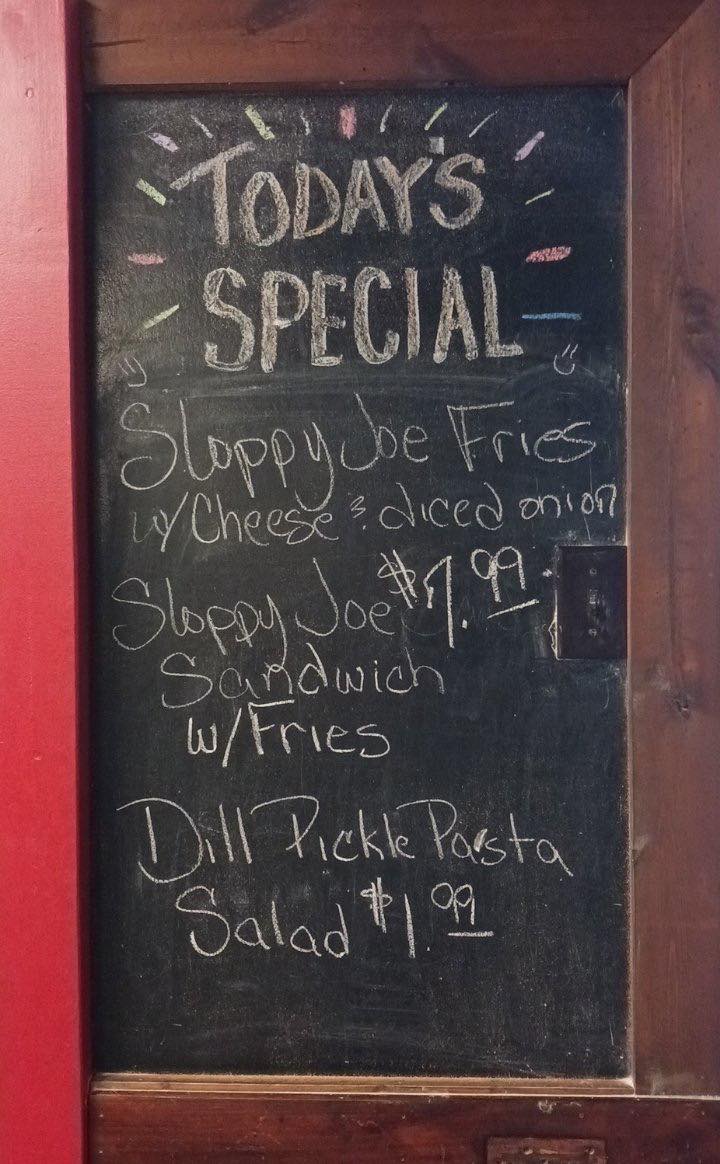 TODAY'S
SPECIAL
Sloppy Joe Fries
w/Cheese & diced onion
Sloppy Joe $7.99
Sandwich
w/Fries
Dill Pickle Pasta
Salad $1.99